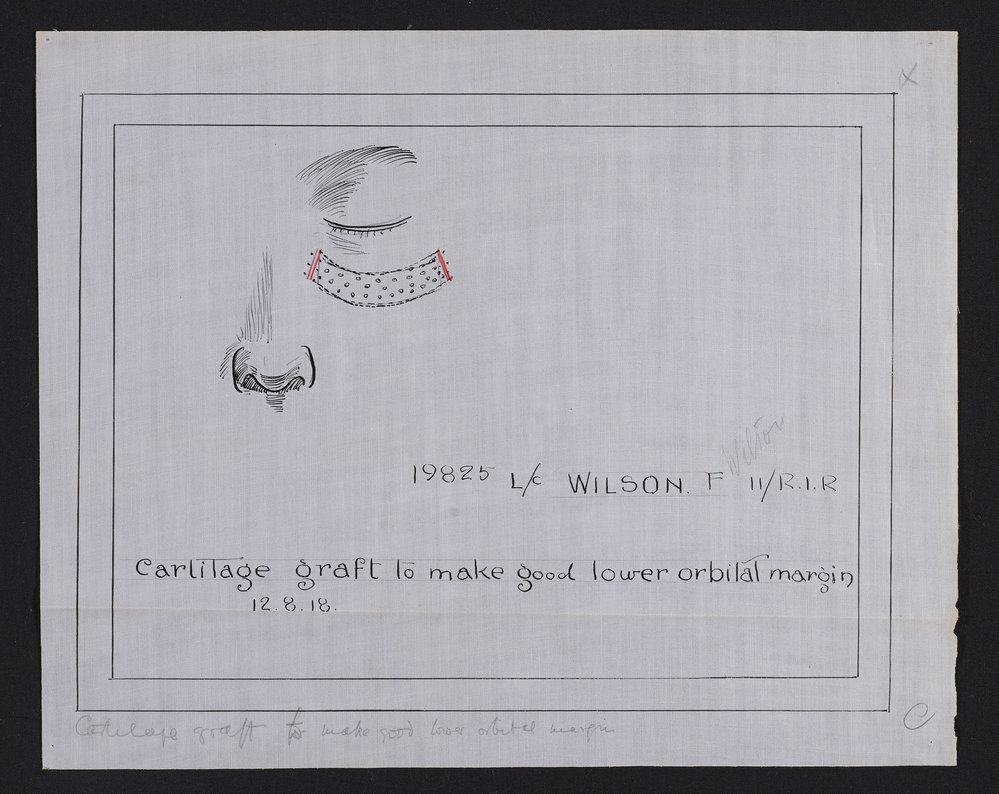 X
Wilson
19825 L/c WILSON. F 11/R.I.R
Cartilage graft to make good lower orbital margin
12.8.18.
Cartilage graft to make good lower orbital margin
C